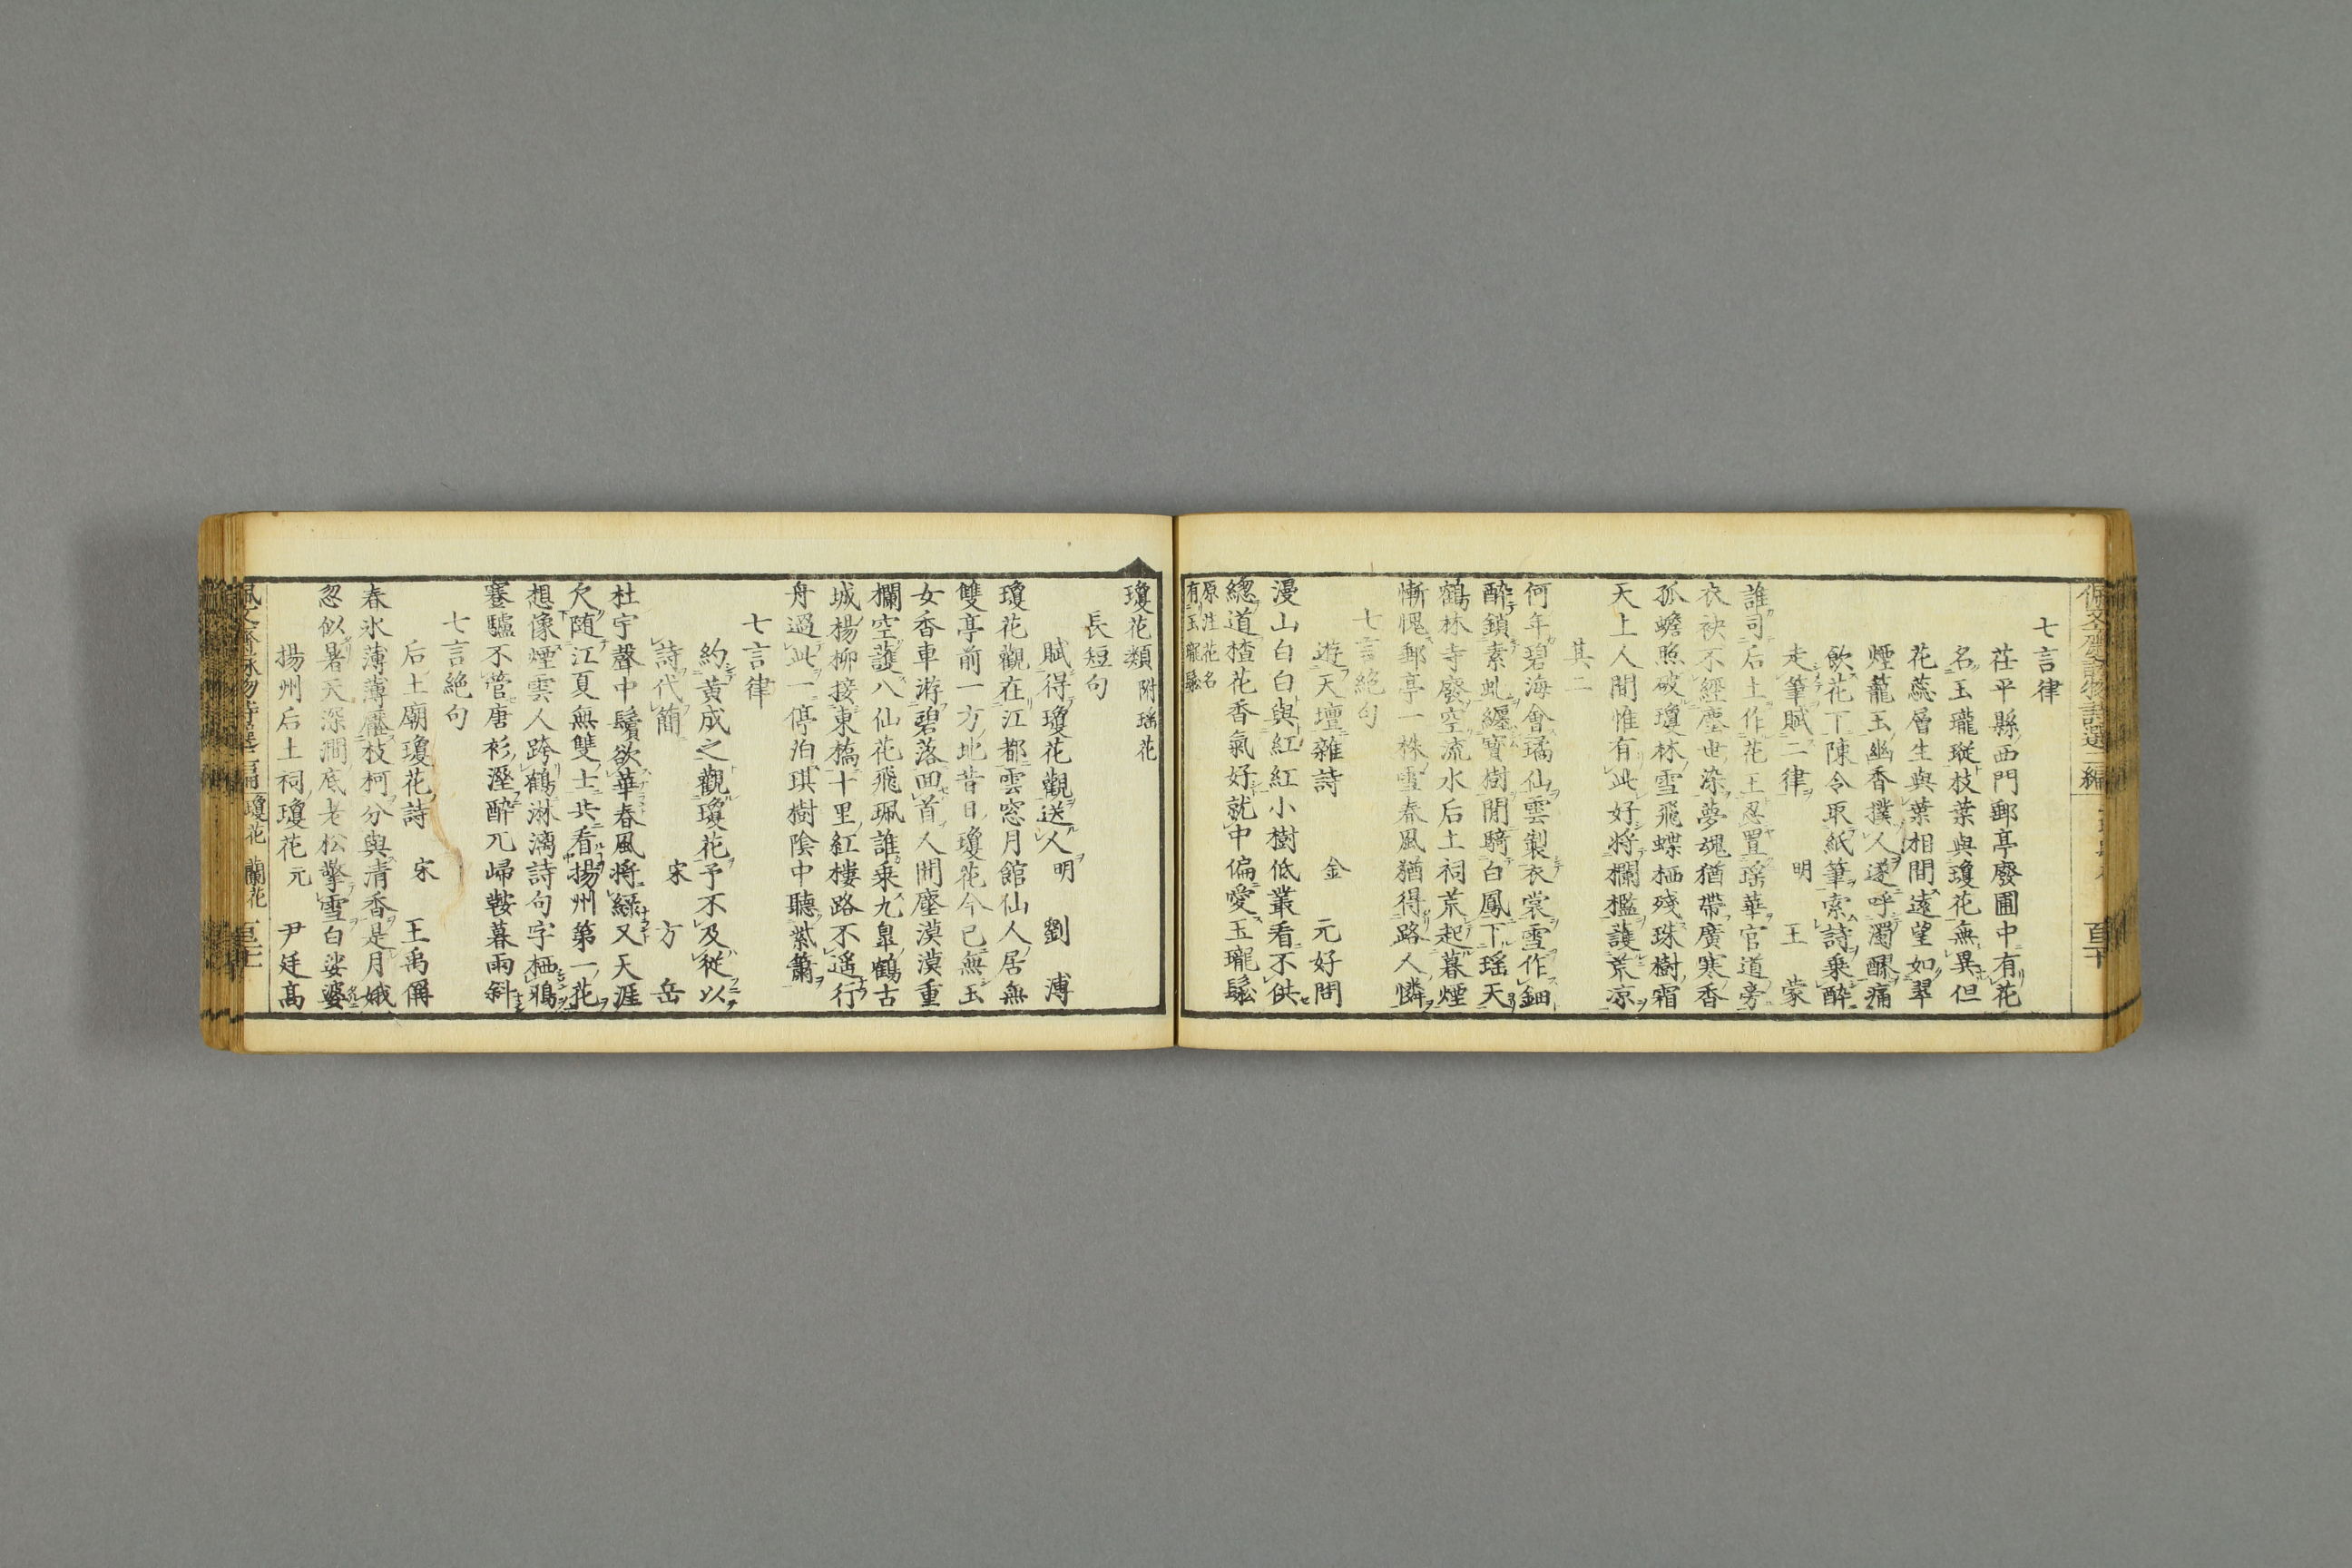 七言律
茌平縣西門郵亭廢圃中有花
名玉瓏瑽枝葉與瓊花無異但
花蕊層生與葉相間遠望如翠
煙籠玉幽香撲人遂呼濁醪痛
飲花下陳令取紙筆索詩乘醉
走筆賦二律 明 王蒙
誰司后土作花王忍置瑤華官道旁
衣袂不經塵世染夢魂猶帶廣寒香
孤蟾照破瓊林雪飛蝶栖殘珠樹霜
天上人間惟有此好將欄檻護荒凉
其二
何年碧海會璚仙雲製衣裳雪作鈿
醉鎖素虬纏寶樹閒騎白鳳下瑤天
鶴林寺廢空流水后土祠荒起暮煙
慚愧郵亭一株雪春風猶得路人憐
七言絶句
遊天壇雜詩 金 元好問
漫山白白與紅紅小樹低叢看不供
總道楂花香氣好就中偏愛玉瓏鬆
原注花名
有玉瓏鬆
瓊花類 附瑤花
長短句
賦得瓊花觀送人 明 劉溥
瓊花觀在江都雲窓月館仙人居無
雙亭前一方地昔日瓊花今已無玉
女香車游碧落回首人間塵漠漠重
欄空護八仙花飛珮誰乘九皐鶴古
城楊柳接東橋十里紅樓路不遥行
舟過此一停泊琪樹陰中聽紫簫
七言律
約黃成之觀瓊花予不及從以
詩代簡 宋 方岳
杜宇聲中鬢欲華春風將綠又天涯
欠随江夏無雙士共看揚州第一花
想像煙雲人跨鶴淋漓詩句字栖鴉
蹇驢不管唐衫溼醉兀歸鞍暮雨斜
七言絶句
后土廟瓊花詩 宋 王禹偁
春氷薄薄壓枝柯分與清香是月娥
忽似暑天深澗底老松擎雪白娑婆
揚州后土祠瓊花 元 尹廷高
佩文齋詠物詩選二編 瓊花 蘭花 百十一